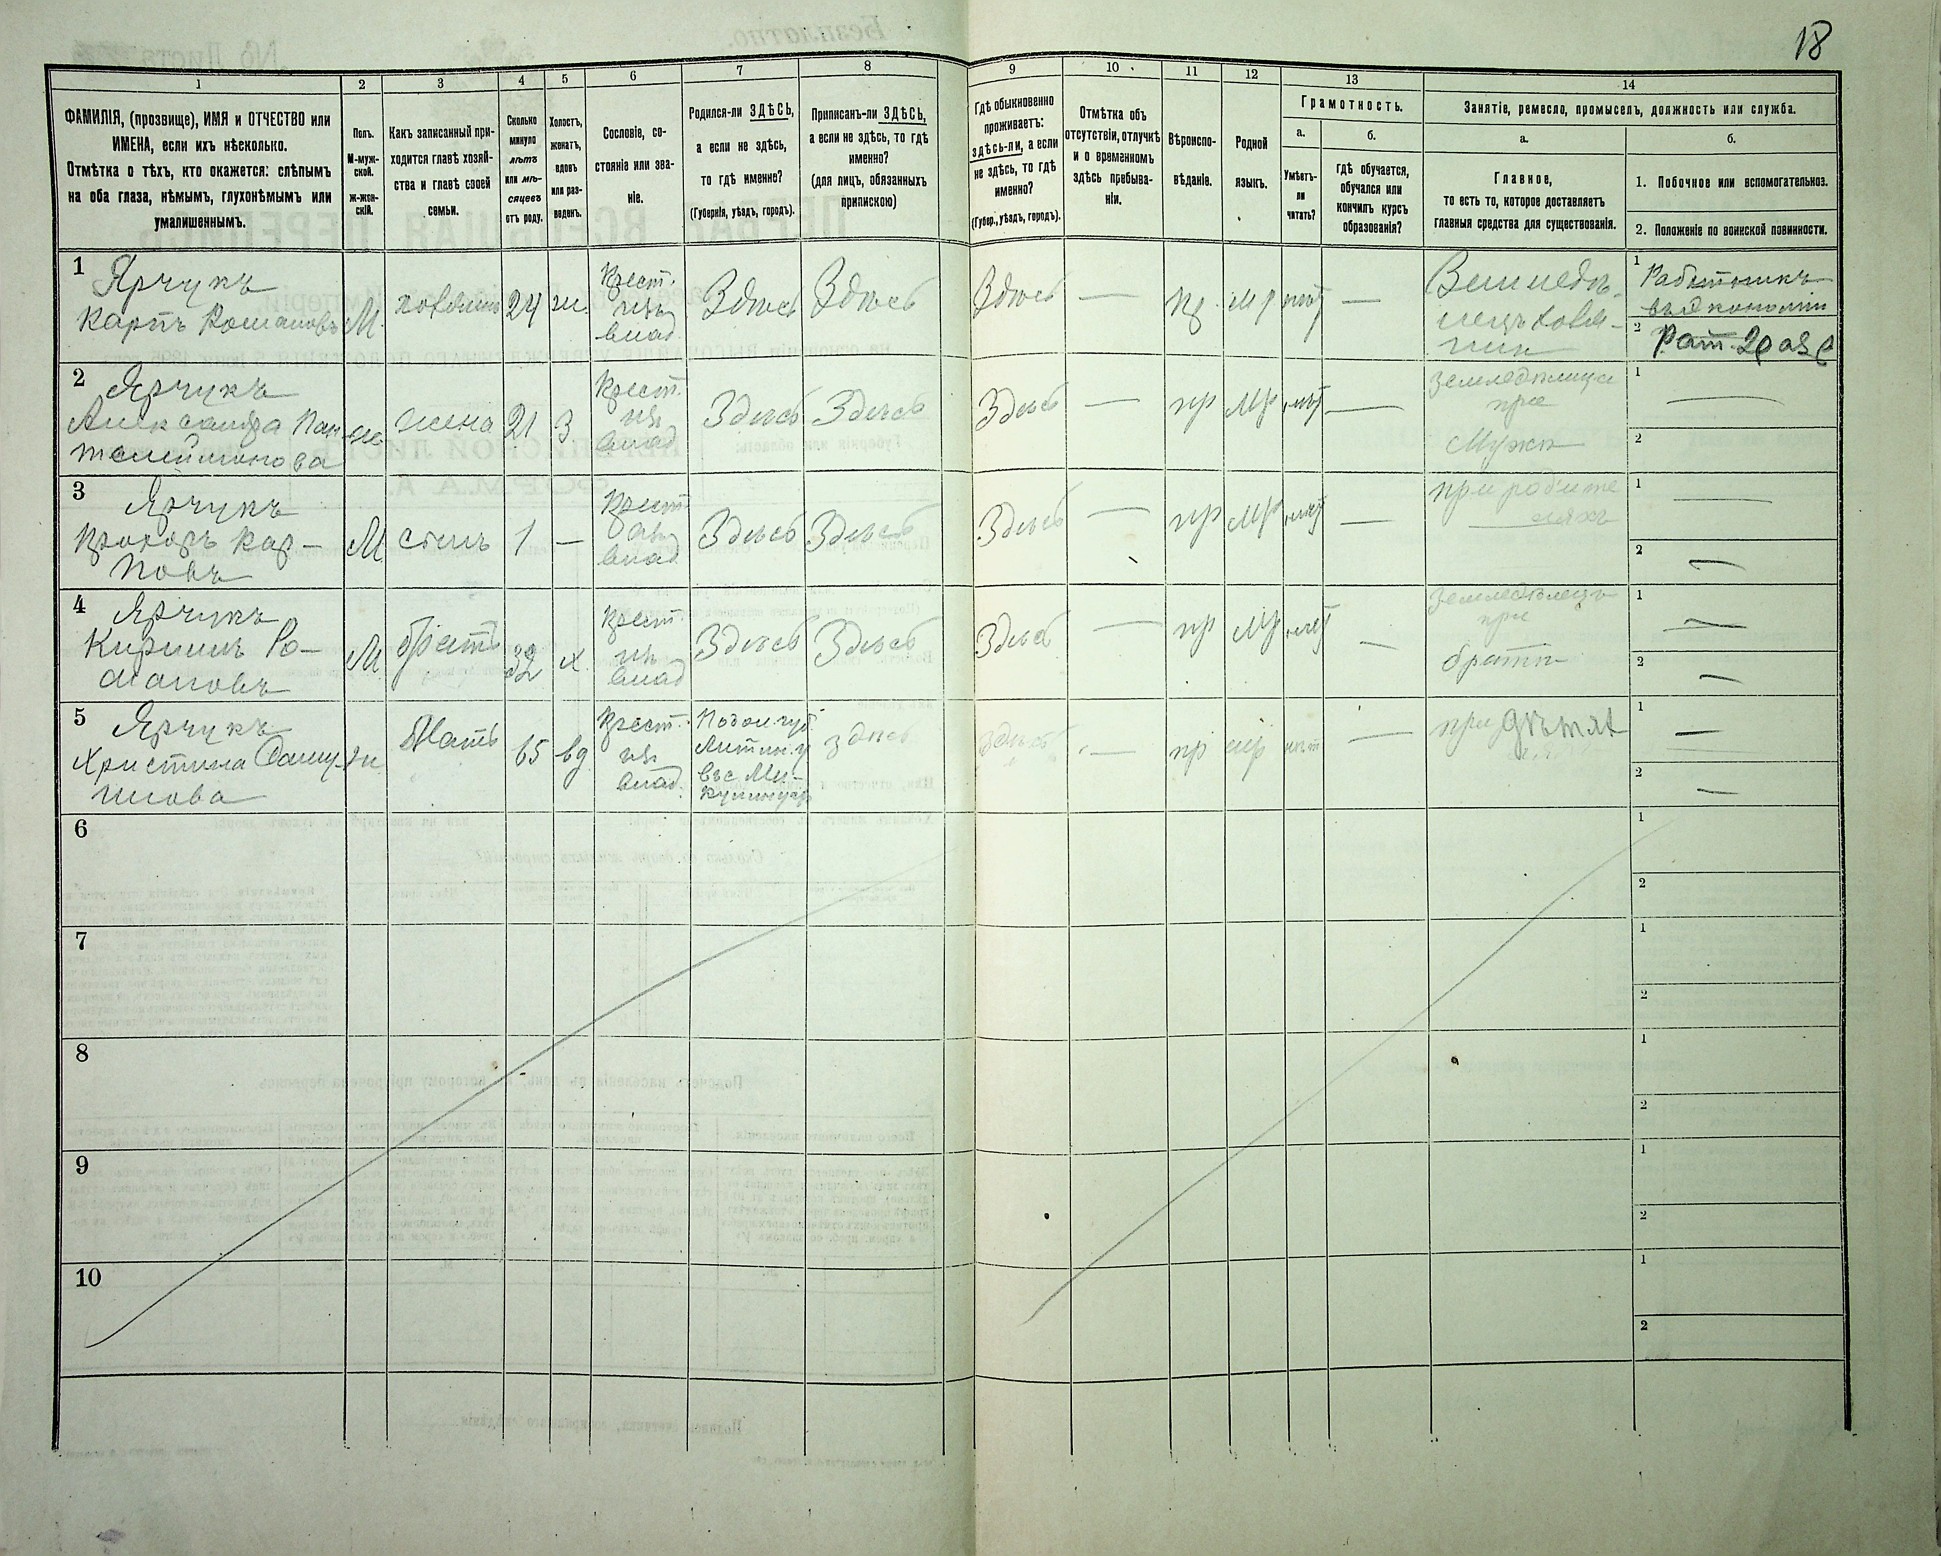 18
1
2
3
4
5
6
7
8
9
10
11
12
13
14
ФАМИЛІЯ, (прозвище), ИМЯ и ОТЧЕСТВО или
ИМЕНА, если ихъ нѣсколько.
Отмѣтка о тѣхъ, кто окажется: слѣпымъ
на оба глаза, нѣмымъ, глухонѣмымъ или
умалишеннымъ.
Полъ.
М-муж-
ской.
ж-жен-
скій.
Какъ записанный при-
ходится главѣ хозяй-
ства и главѣ своей
семьи.
Сколько
минуло
лѣтъ
или мѣ-
сяцевъ
отъ роду.
Холостъ,
женатъ,
вдовъ
или раз-
веденъ.
Сословіе, со-
стояніе или зва-
ніе.
Родился-ли ЗДѢСЬ,
а если не здѣсь,
то гдѣ именно?
(Губернія, уѣздъ, городъ).
Приписанъ-ли ЗДѢСЬ,
а если не здѣсь, то гдѣ
именно?
(для лицъ, обязанныхъ
припискою)
Гдѣ обыкновенно
проживаетъ:
здѣсь-ли, а если
не здѣсь, то гдѣ
именно?
(Губер., уѣздъ, городъ).
Отмѣтка объ
отсутствіи, отлучкѣ
и о временномъ
здѣсь пребыва-
ніи.
Вѣроиспо-
вѣданіе.
Родной
языкъ.
Грамотность.
а.
б.
Умѣетъ-
ли
читать?
гдѣ обучается,
обучался или
кончилъ курсъ
образованія?
Занятіе, ремесло, промыселъ, должность или служба.
а.
б.
Главное,
то есть то, которое доставляетъ
главныя средства для существованія.
1. Побочное или вспомогательное.
2. Положеніе по воинской повинности.
1
Ярчукъ
Карпъ Романовъ
М
хозяинъ
24
ж.
Крест.
изъ
влад.
Здѣсь
Здѣсь
Здѣсь
—
пр.
мр
нѣт
—
Земледѣ-
лецъ хозя-
инъ
1
Работникъ
въ экономіи
2
Рат.
2
Ярчукъ
Александра Пан-
телеймонова
же
жена
21
З
Крест.
изъ
влад
Здѣсь
Здѣсь
Здѣсь
—
пр
мр
нѣт
—
земледѣлица
при
мужѣ
1
—
2
3
Ярчукъ
Прохоръ Кар-
повъ
М
сынъ
1
—
Крест
изъ
влад
Здѣсь
Здѣсь
Здѣсь
—
пр
мр
нѣт
—
при родите
ляхъ
1
—
2
—
4
Ярчукъ
Кириллъ Ро-
мановъ
М
братъ
32
х
Крест.
изъ
влад
Здѣсь
Здѣсь
Здѣсь
—
пр
мр
нѣт
—
земледѣлецъ
при
братѣ
1
—
2
—
5
Ярчукъ
Христина
ж
Мать
65
вд
Крест.
изъ
влад.
Подол губ
Литин. у
въ с Ми-
здѣсь
здѣсь
—
пр
мр
нѣт
—
при дѣтях
1
—
2
—
6
1
2
7
1
2
8
1
2
9
1
2
10
1
2